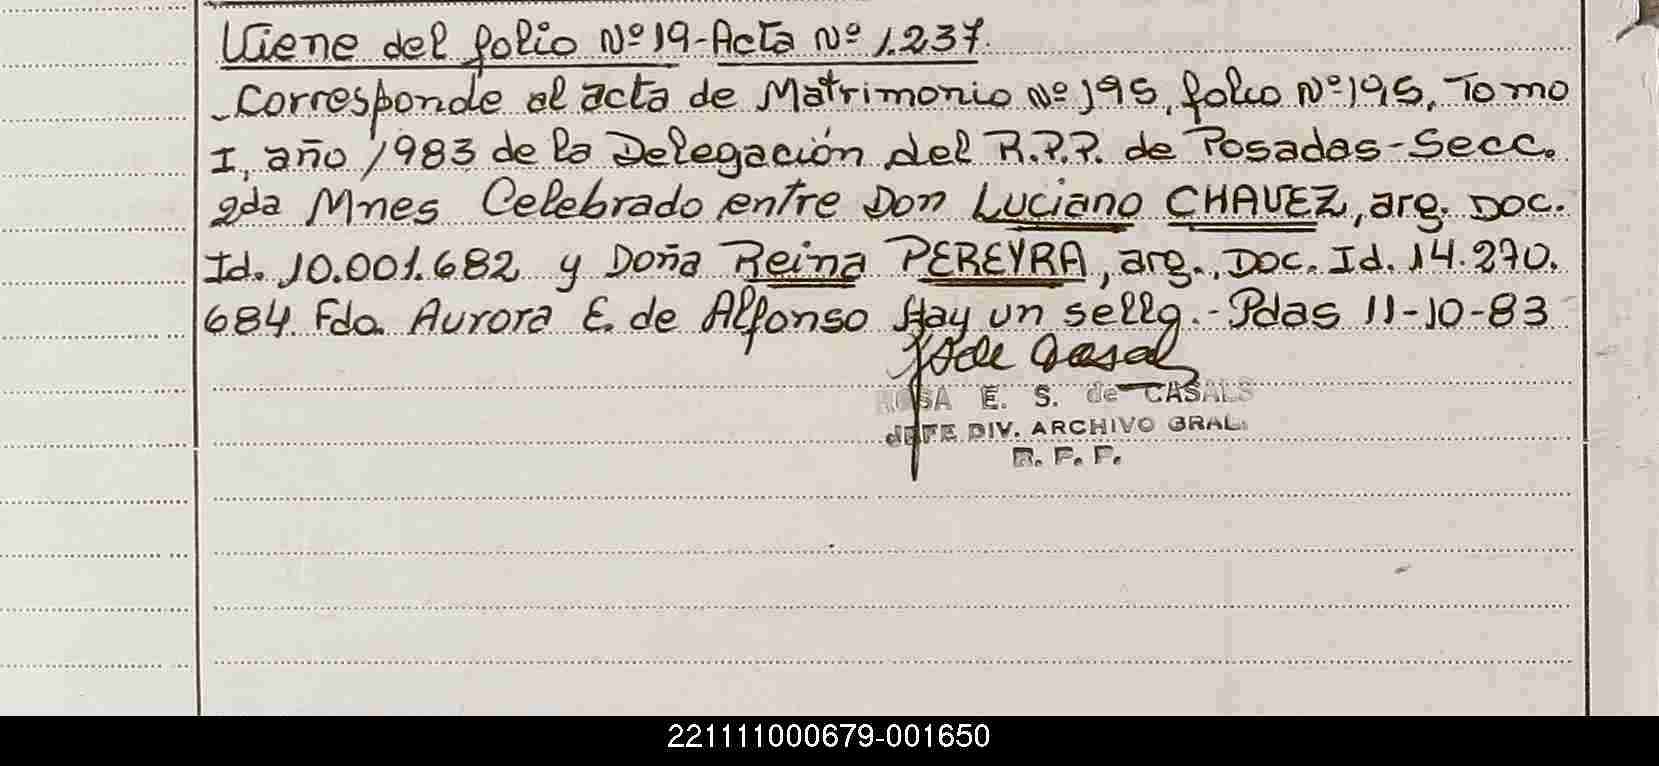 Viene del folio Nº 19-Acta Nº 1.237.
Corresponde al acta de Matrimonio Nº 195, folio Nº 195, Tomo
I, año 1983 de la Delegación del R.P.P. de Posadas-Secc.
2da Mnes Celebrado entre Don Luciano CHAVEZ, arg. Doc.
Id. 10.001.682 y Doña Reina PEREYRA, arg., Doc. Id. 14.270.
684 Fdo. Aurora E. de Alfonso Hay un sello.- Pdas 11-10-83
ROSA E. S. de CASALS
JEFE DIV. ARCHIVO GRAL.
R. P. P.
221111000679-001650